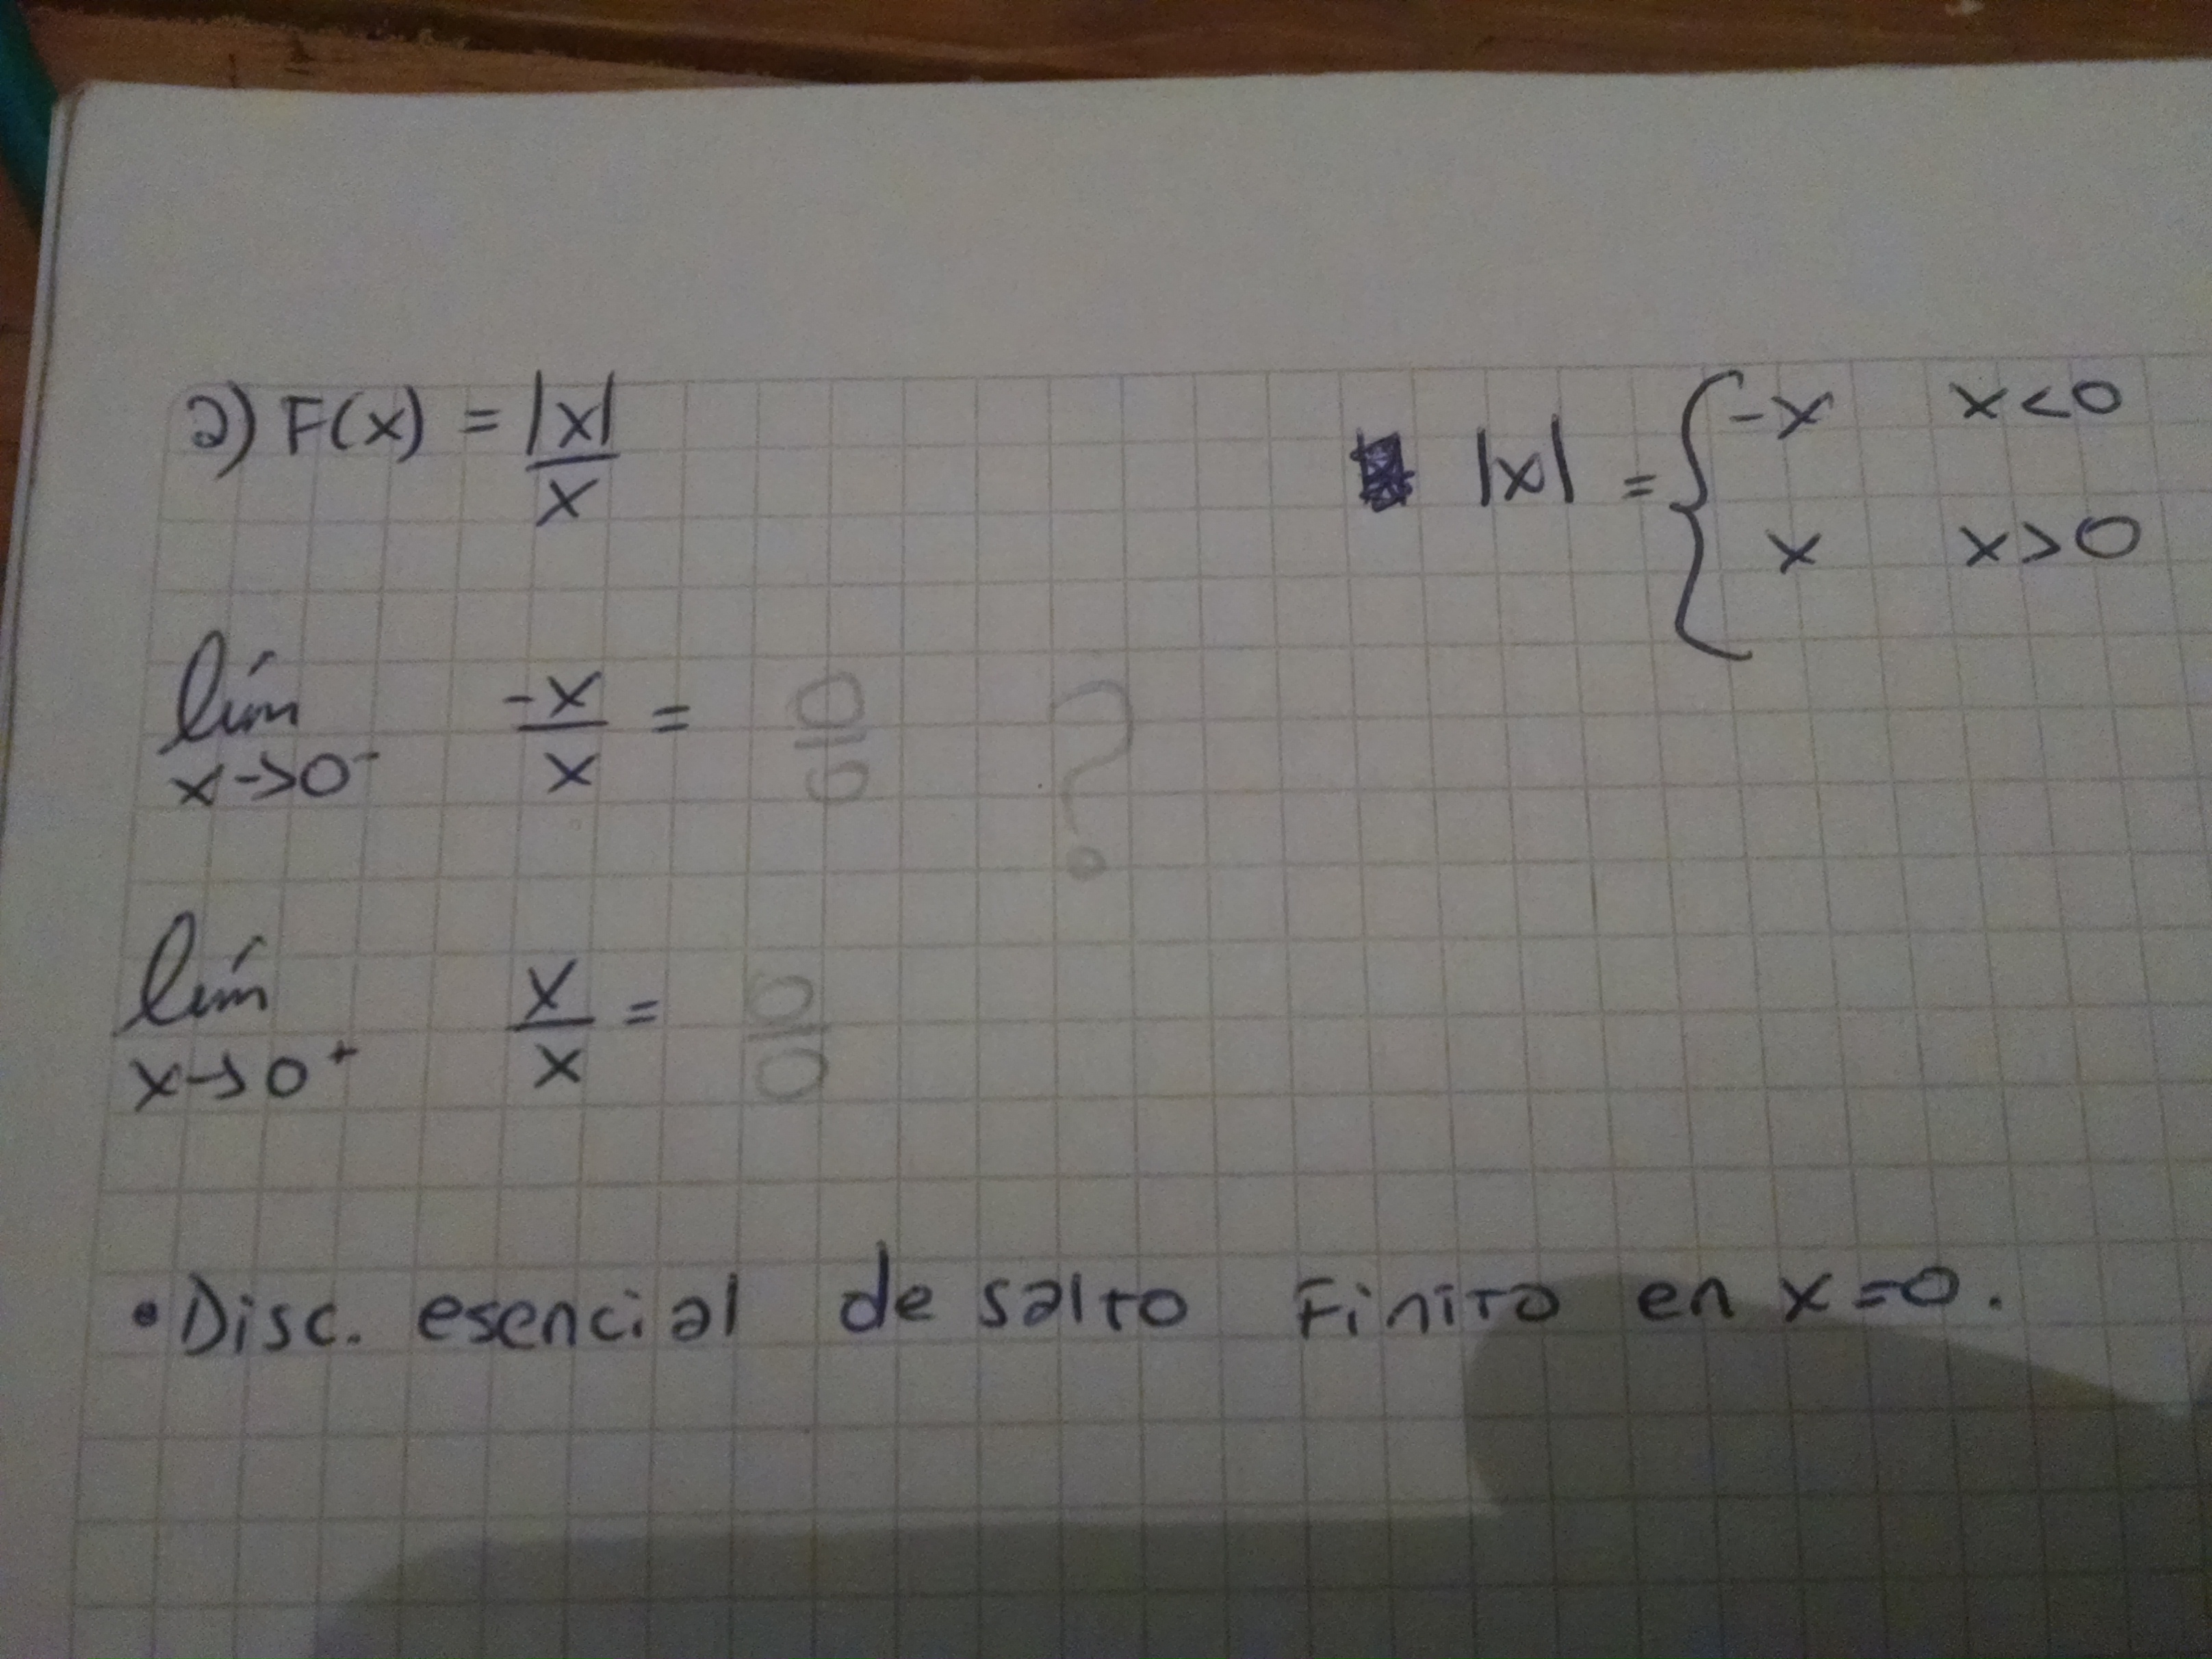 a) F(x) = |x|/x
|x| = { -x x<0
x x>0
lím x->0⁻ -x/x = 0/0 ?
lím x->0⁺ x/x = 0/0
• Disc. esencial de salto Finito en x=0.